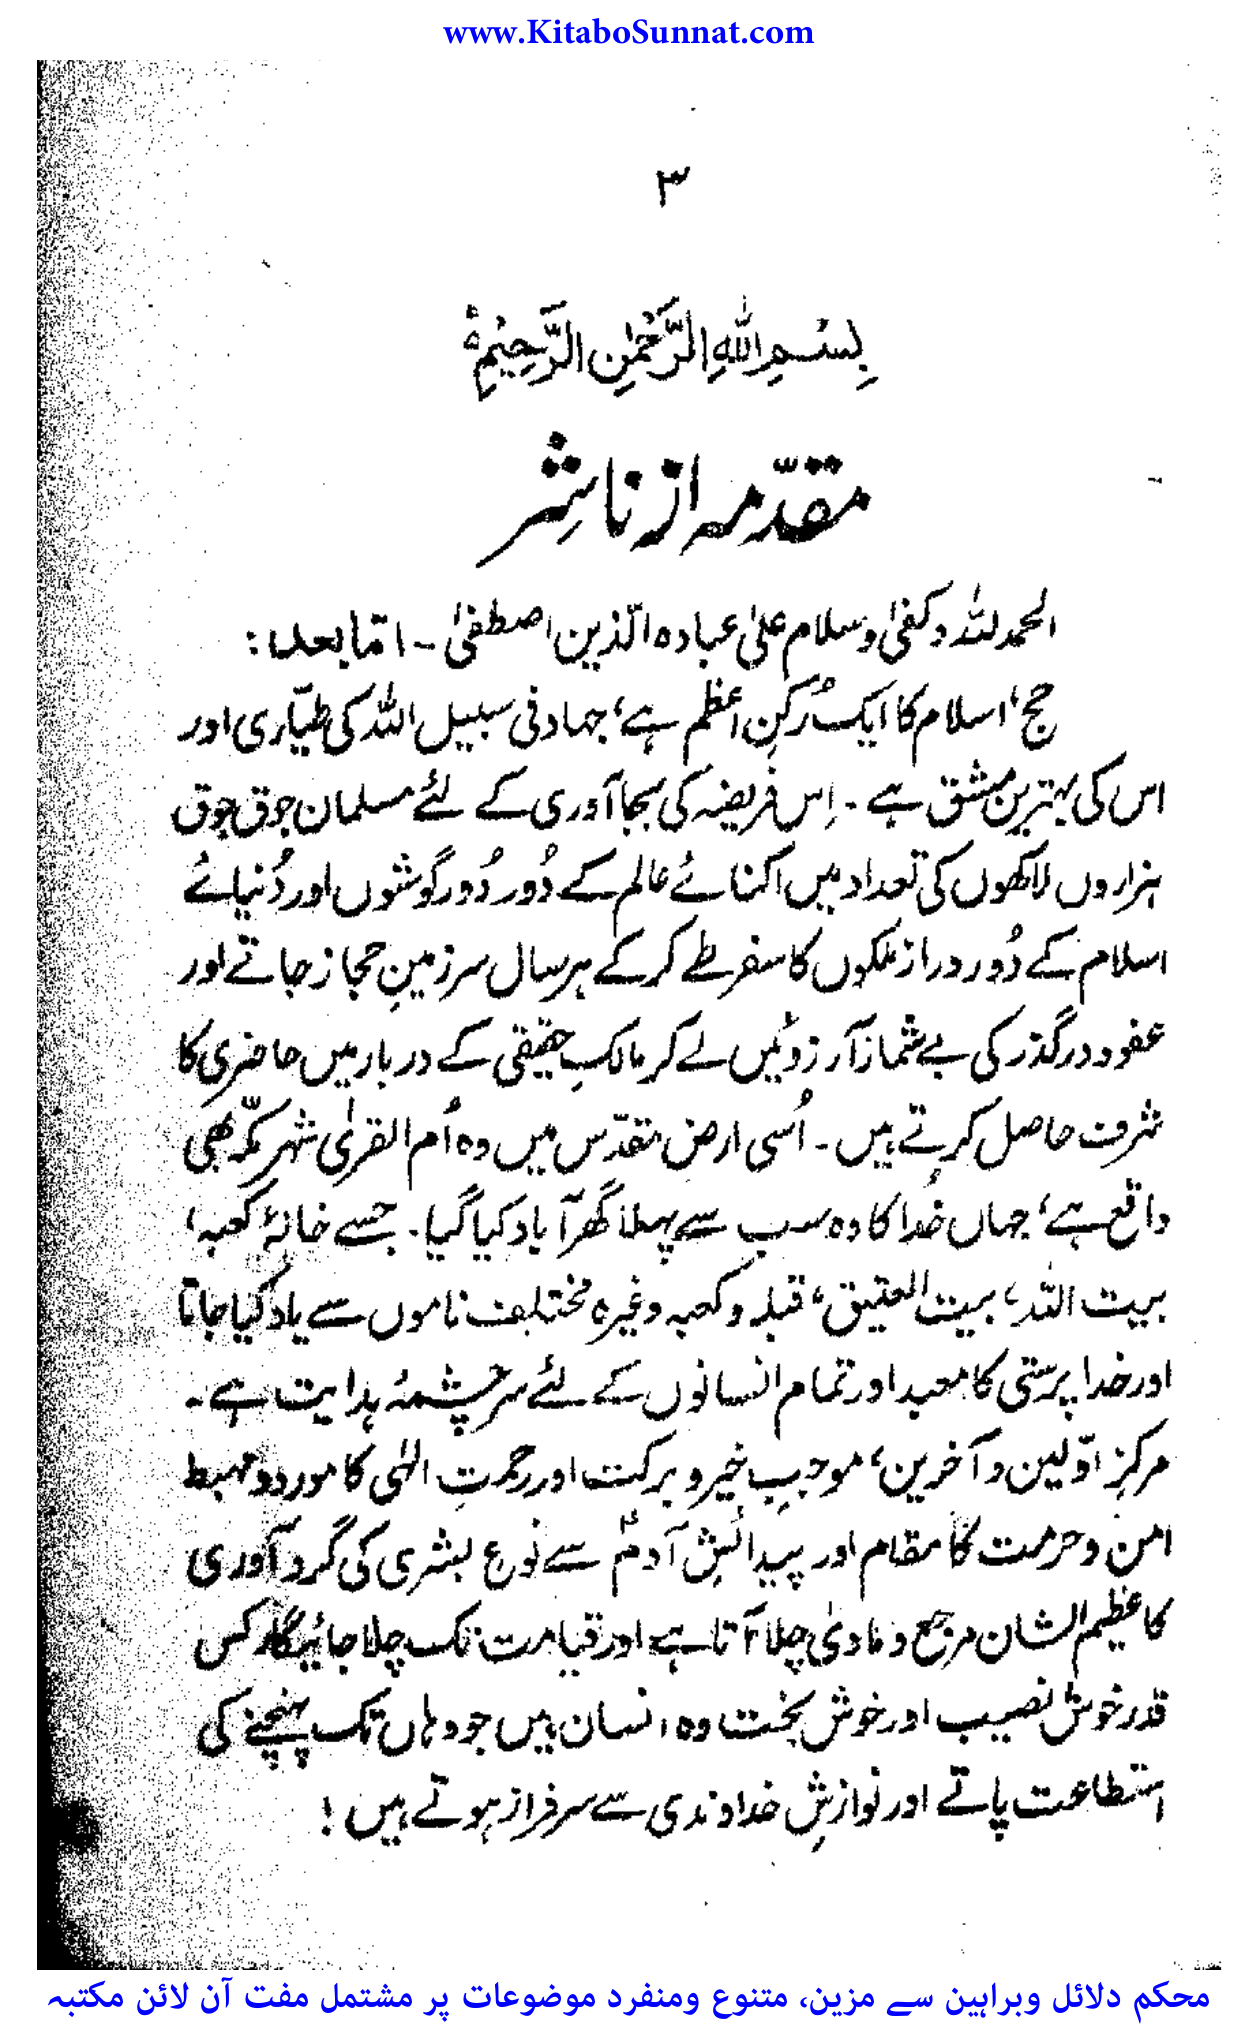 www.KitaboSunnat.com
۳
بِسْمِ اللّٰهِ الرَّحْمٰنِ الرَّحِیْمِ ؕ
مقدّمہ از ناشِر
الحمد للّٰہ وکفیٰ وسلام علیٰ عبادہ الّذین اصطفیٰ ۔ امّا بعد :
حج، اسلام کا ایک رُکنِ اعظم ہے، جہاد فی سبیل اللّٰہ کی طیّاری اور
اس کی بہترین مشق ہے ۔ اِس فریضہ کی بجا آوری کے لئے مسلمان جوق جوق
ہزاروں لاکھوں کی تعداد میں اکنائے عالم کے دُور دُور گوشوں اور دُنیائے
اسلام کے دُور دراز ملکوں کا سفر طے کر کے ہر سال سرزمینِ حجاز جاتے اور
عفو و درگذر کی بے شمار آرزوئیں لے کر مالکِ حقیقی کے دربار میں حاضری کا
شرف حاصل کرتے ہیں ۔ اُسی ارض مقدّس میں وہ اُم القریٰ شہر مکّہ بھی
واقع ہے، جہاں خُدا کا وہ سب سے پہلا گھر آباد کیا گیا ۔ جسے خانۂ کعبہ،
بیت اللّٰہ، بیت العتیق، قبلہ و کعبہ وغیرہ مختلف ناموں سے یاد کیا جاتا
اور خدا پرستی کا معبد اور تمام انسانوں کے لئے سرچشمۂ ہدایت ہے ۔
مرکزِ اوّلین و آخرین، موجبِ خیر و برکت اور رحمتِ الٰہی کا مورد و مہبط
امن و حرمت کا مقام اور پیدائشِ آدمؑ سے نوع بشری کی گرد آوری
کا عظیم الشان مرجع و ماویٰ چلا آتا ہے اور قیامت تک چلا جائیگا۔ کس
قدر خوش نصیب اور خوش بخت وہ انسان ہیں جو وہاں تک پہنچنے کی
استطاعت پاتے اور نوازشِ خداوندی سے سرفراز ہوتے ہیں !
محکم دلائل وبراہین سے مزین، متنوع ومنفرد موضوعات پر مشتمل مفت آن لائن مکتبہ